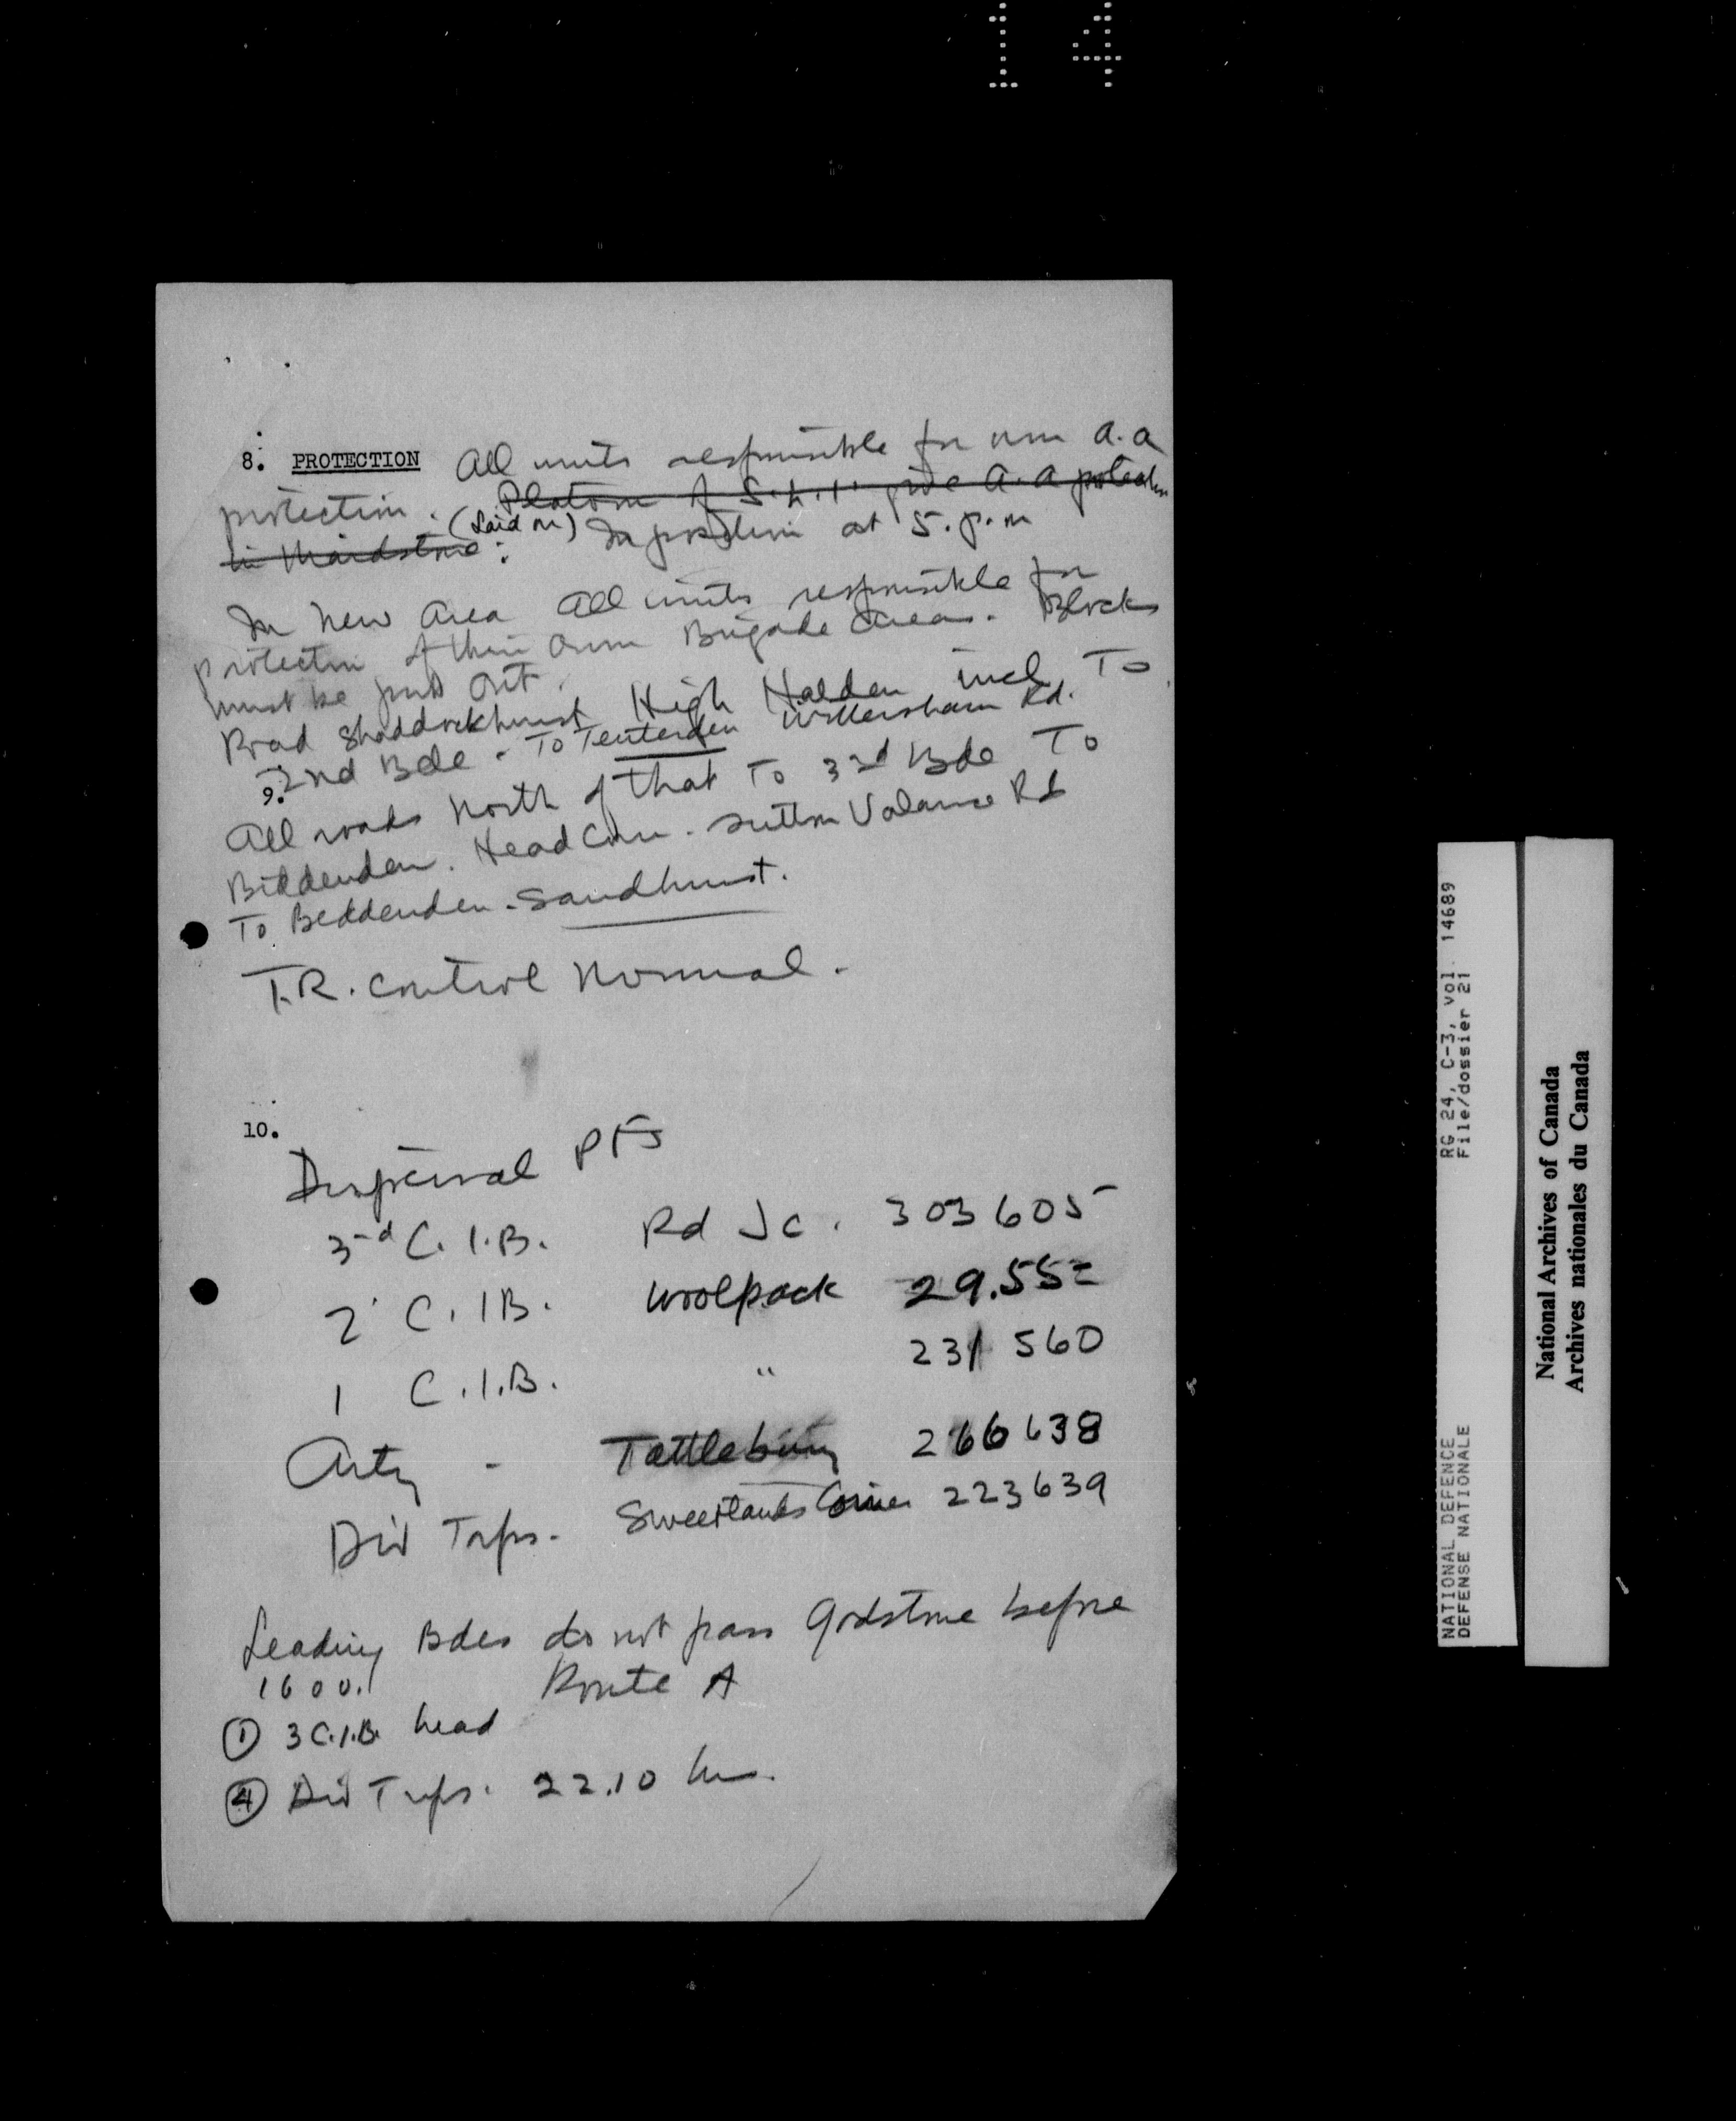 14
8. PROTECTION All units responsible for own A.A
protection. Platoon of S.L.I. give A.A protection
in Maidstone: (Laid on) In position at 5.p.m
In New Area All units responsible for
protection of their own Brigade areas. Blocks
must be put out.
Road Shaddoxhurst High Halden incl To
2nd Bde - To Tenterden Wittersham Rd.
9.
All roads North of that To 3rd Bde To
Biddenden. Head Corn. Sutton Valance Rd
To Beddenden - Sandhurst.
T.R. Control Normal.
10.
Dispersal Pts
3rd C.I.B. Rd Jc. 303605
2 C.I.B. Woolpack 29.552
1 C.I.B. " 231 560
Arty - Tattlebury 266638
Div Trps. Sweetlands Corner 223639
Leading Bdes do not pass Godstone before
1600. Route A
① 3 C.I.B. head
④ Div Trps. 22.10 hrs.
NATIONAL DEFENCE RG 24, C-3, vol 14689
DEFENSE NATIONALE File/dossier 21
National Archives of Canada
Archives nationales du Canada